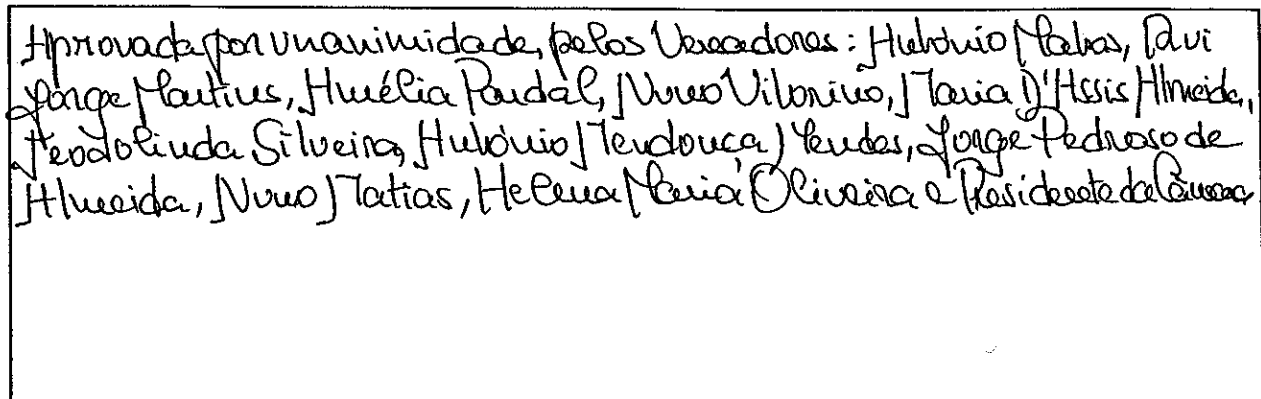 Aprovada por unanimidade, pelos Vereadores: António Matos, Rui
Jorge Martins, Amélia Pardal, Nuno Vitorino, Maria D'Assis Almeida,
Teodolinda Silveira, António Mendonça Mendes, Jorge Pedroso de
Almeida, Nuno Matias, Helena Maria Oliveira e Presidente da Câmara